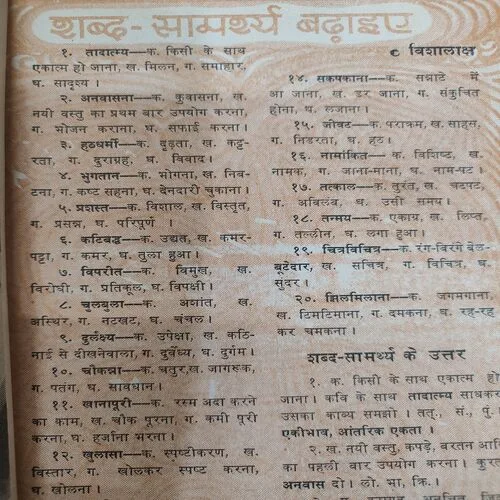 शब्द-सामर्थ्य बढ़ाइए
८ विशालाक्ष
१. तादात्म्य—क. किसी के साथ
एकात्म हो जाना, ख. मिलन, ग. समाहार,
घ. सादृश्य ।
२. अनवासना—क. कुवासना, ख.
नयी वस्तु का प्रथम बार उपयोग करना,
ग. भोजन कराना, घ. सफाई करना ।
३. हठधर्मी—क. दृढ़ता, ख. कट्ट-
रता, ग. दुराग्रह, घ. विवाद ।
४. भुगतान—क. भोगना, ख. निब-
टना, ग. कष्ट सहना, घ. देनदारी चुकाना ।
५. प्रशस्त—क. विशाल, ख. विस्तृत,
ग. प्रसन्न, घ. परिपूर्ण ।
६. कटिबद्ध—क. उद्यत, ख. कमर-
पट्टा, ग. कमर, घ. तुला हुआ ।
७. विपरीत—क. विमुख, ख.
विरोधी, ग. प्रतिकूल, घ. विपक्षी ।
८. चुलबुला—क. अशांत, ख.
अस्थिर, ग. नटखट, घ. चंचल ।
९. दुर्लक्ष्य—क. उपेक्षा, ख. कठि-
नाई से दीखनेवाला, ग. दुर्बोध्य, घ. दुर्गम ।
१०. चौकन्ना—क. चतुर, ख. जागरूक,
ग. पतंग, घ. सावधान ।
११. खानापूरी—क. रस्म अदा करने
का काम, ख. चौक पूरना, ग. कमी पूरी
करना, घ. हर्जाना भरना ।
१२. खुलासा—क. स्पष्टीकरण, ख.
विस्तार, ग. खोलकर स्पष्ट करना,
घ. खोलना ।
१४. सकपकाना—क. सन्नाटे में
आ जाना, ख. डर जाना, ग. संकुचित
होना, घ. लजाना ।
१५. जीवट—क. पराक्रम, ख. साहस,
ग. निडरता, घ. हठ ।
१६. नामांकित—क. विशिष्ट, ख.
नामक, ग. जाना-माना, घ. नाम-पट ।
१७. तत्काल—क. तुरंत, ख. चटपट,
ग. अविलंब, घ. उसी समय ।
१८. तन्मय—क. एकाग्र, ख. लिप्त,
ग. तल्लीन, घ. लगा हुआ ।
१९. चित्रविचित्र—क. रंग-बिरंगे बेल-
बूटेदार, ख. सचित्र, ग. विचित्र, घ.
सुंदर ।
२०. झिलमिलाना—क. जगमगाना,
ख. टिमटिमाना, ग. दमकना, घ. रह-रह
कर चमकना ।
शब्द-सामर्थ्य के उत्तर
१. क. किसी के साथ एकात्म हो
जाना । कवि के साथ तादात्म्य साधकर
उसका काव्य समझो । तत्., सं., पुं.
एकीभाव, आंतरिक एकता ।
२. ख. नयी वस्तु, कपड़े, बरतन आदि
का पहली बार उपयोग करना ।
अनवास दो । लो. भा., क्रि. ।